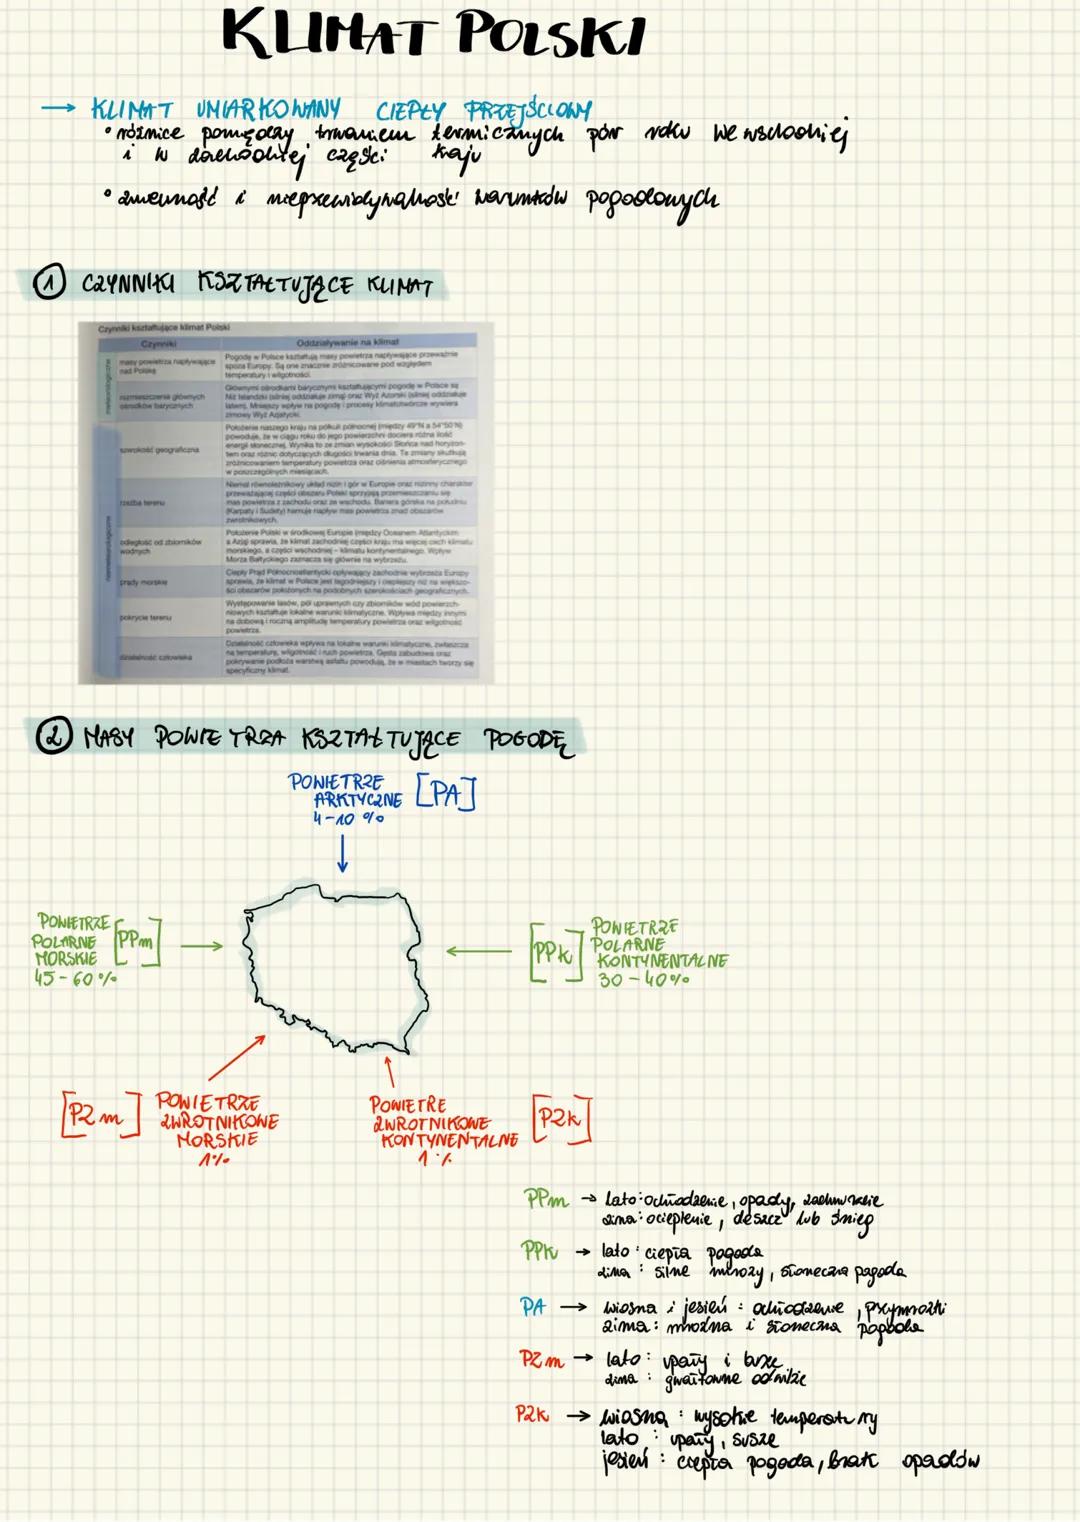 KLIMAT POLSKI
→ KLIMAT UMIARKOWANY CIEPŁY PRZEJŚCIOWY
• różnice pomiędzy trwaniem termicznych pór roku we wschodniej
i w zachodniej części kraju
• zmienność i nieprzewidywalność warunków pogodowych
1 CZYNNIKI KSZTAŁTUJĄCE KLIMAT
Czynniki kształtujące klimat Polski
Czynniki
Oddziaływanie na klimat
meteorologiczne
masy powietrza napływające
nad Polskę
Pogodę w Polsce kształtują masy powietrza napływające przeważnie
spoza Europy. Są one znacznie zróżnicowane pod względem
temperatury i wilgotności.
rozmieszczenie głównych
ośrodków barycznych
Głównymi ośrodkami barycznymi kształtującymi pogodę w Polsce są
Niż Islandzki (silniej oddziałuje zimą) oraz Wyż Azorski (silniej oddziałuje
latem). Mniejszy wpływ na pogodę i procesy klimatotwórcze wywiera
zimowy Wyż Azjatycki.
niemeteorologiczne
szerokość geograficzna
Położenie naszego kraju na półkuli północnej (między 49°N a 54°50'N)
powoduje, że w ciągu roku do jego powierzchni dociera różna ilość
energii słonecznej. Wynika to ze zmian wysokości Słońca nad horyzon-
tem oraz różnic dotyczących długości trwania dnia. Te zmiany skutkują
zróżnicowaniem temperatury powietrza oraz ciśnienia atmosferycznego
w poszczególnych miesiącach.
rzeźba terenu
Niemal równoleżnikowy układ nizin i gór w Europie oraz nizinny charakter
przeważającej części obszaru Polski sprzyjają przemieszczaniu się
mas powietrza z zachodu oraz ze wschodu. Bariera górska na południu
(Karpaty i Sudety) hamuje napływ mas powietrza znad obszarów
zwrotnikowych.
odległość od zbiorników
wodnych
Położenie Polski w środkowej Europie (między Oceanem Atlantyckim
a Azją) sprawia, że klimat zachodniej części kraju ma więcej cech klimatu
morskiego, a części wschodniej – klimatu kontynentalnego. Wpływ
Morza Bałtyckiego zaznacza się głównie na wybrzeżu.
prądy morskie
Ciepły Prąd Północnoatlantycki opływający zachodnie wybrzeża Europy
sprawia, że klimat w Polsce jest łagodniejszy i cieplejszy niż na większo-
ści obszarów położonych na podobnych szerokościach geograficznych.
pokrycie terenu
Występowanie lasów, pól uprawnych czy zbiorników wód powierzch-
niowych kształtuje lokalne warunki klimatyczne. Wpływa między innymi
na dobową i roczną amplitudę temperatury powietrza oraz wilgotność
powietrza.
działalność człowieka
Działalność człowieka wpływa na lokalne warunki klimatyczne, zwłaszcza
na temperaturę, wilgotność i ruch powietrza. Gęsta zabudowa oraz
pokrywanie podłoża warstwą asfaltu powodują, że w miastach tworzy się
specyficzny klimat.
2 MASY POWIETRZA KSZTAŁTUJĄCE POGODĘ
POWIETRZE
ARKTYCZNE [PA]
4-10 %
POWIETRZE
POLARNE [PPm]
MORSKIE
45-60 %
[PPk] POWIETRZE
POLARNE
KONTYNENTALNE
30-40 %
[PZm] POWIETRZE
ZWROTNIKOWE
MORSKIE
1 %
POWIETRE
ZWROTNIKOWE [PZk]
KONTYNENTALNE
1 %
PPm → lato: ochłodzenie, opady, zachmurzenie
zima: ocieplenie, deszcz lub śnieg
PPk → lato: ciepła pogoda
zima: silne mrozy, słoneczna pogoda
PA → wiosna i jesień: ochłodzenie, przymrozki
zima: mroźna i słoneczna pogoda
PZm → lato: upały i burze
zima: gwałtowne odwilże
PZk → wiosna: wysokie temperatury
lato: upały, susze
jesień: ciepła pogoda, brak opadów